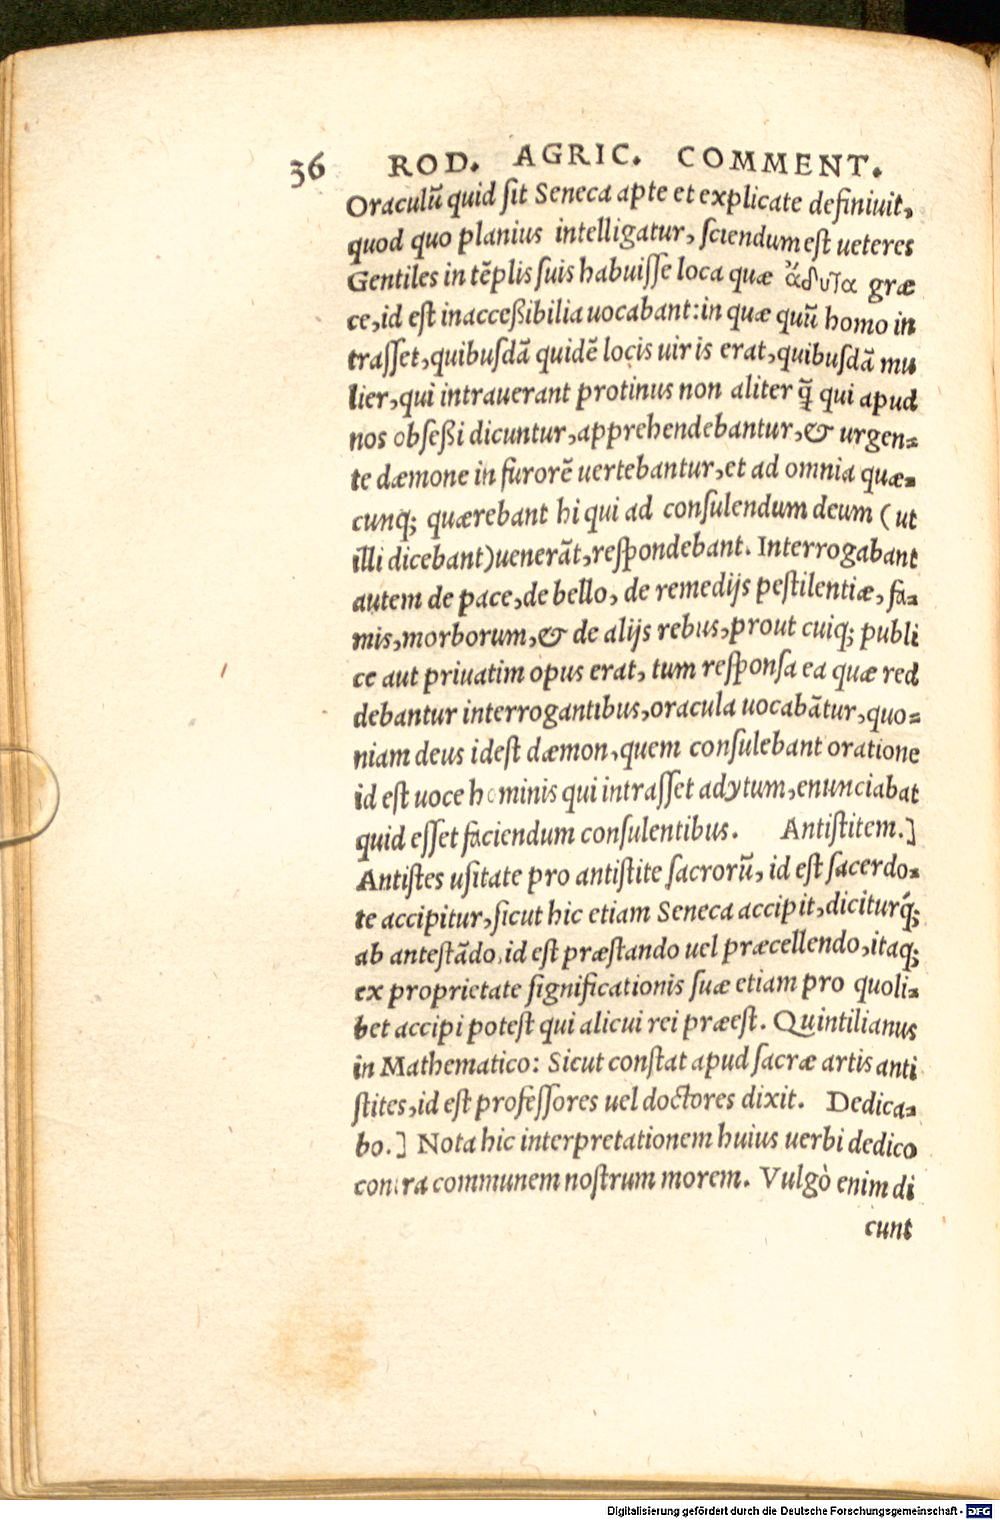 36 ROD. AGRIC. COMMENT.
Oraculũ quid ſit Seneca apte et explicate definiuit,
quod quo planius intelligatur, ſciendum eſt ueteres
Gentiles in tẽplis ſuis habuiſſe loca quæ ἄδυτα græ
ce, id eſt inacceßibilia uocabant: in quæ quũ homo in
traſſet, quibuſdã quidẽ locis uir is erat, quibuſdã mu
lier, qui intrauerant protinus non aliter q̃ qui apud
nos obſeßi dicuntur, apprehendebantur, & urgen⸗
te dæmone in furorẽ uertebantur, et ad omnia quæ⸗
cunq; quærebant hi qui ad conſulendum deum (ut
illi dicebant) uenerãt, reſpondebant. Interrogabant
autem de pace, de bello, de remedijs peſtilentiæ, fa⸗
mis, morborum, & de alijs rebus, prout cuiq; publi
ce aut priuatim opus erat, tum reſponſa ea quæ red
debantur interrogantibus, oracula uocabãtur, quo⸗
niam deus id eſt dæmon, quem conſulebant oratione
id eſt uoce hominis qui intraſſet adytum, enunciabat
quid eſſet faciendum conſulentibus. Antiſtitem.]
Antiſtes uſitate pro antiſtite ſacrorũ, id eſt ſacerdo⸗
te accipitur, ſicut hic etiam Seneca accipit, diciturq́;
ab anteſtãdo, id eſt præſtando uel præcellendo, itaq;
ex proprietate ſignificationis ſuæ etiam pro quoli⸗
bet accipi poteſt qui alicui rei præeſt. Quintilianus
in Mathematico: Sicut conſtat apud ſacræ artis anti
ſtites, id eſt profeſſores uel doctores dixit. Dedica⸗
bo.] Nota hic interpretationem huius uerbi dedico
contra communem noſtrum morem. Vulgò enim di
cunt
Digitalisierung gefördert durch die Deutsche Forschungsgemeinschaft - DFG